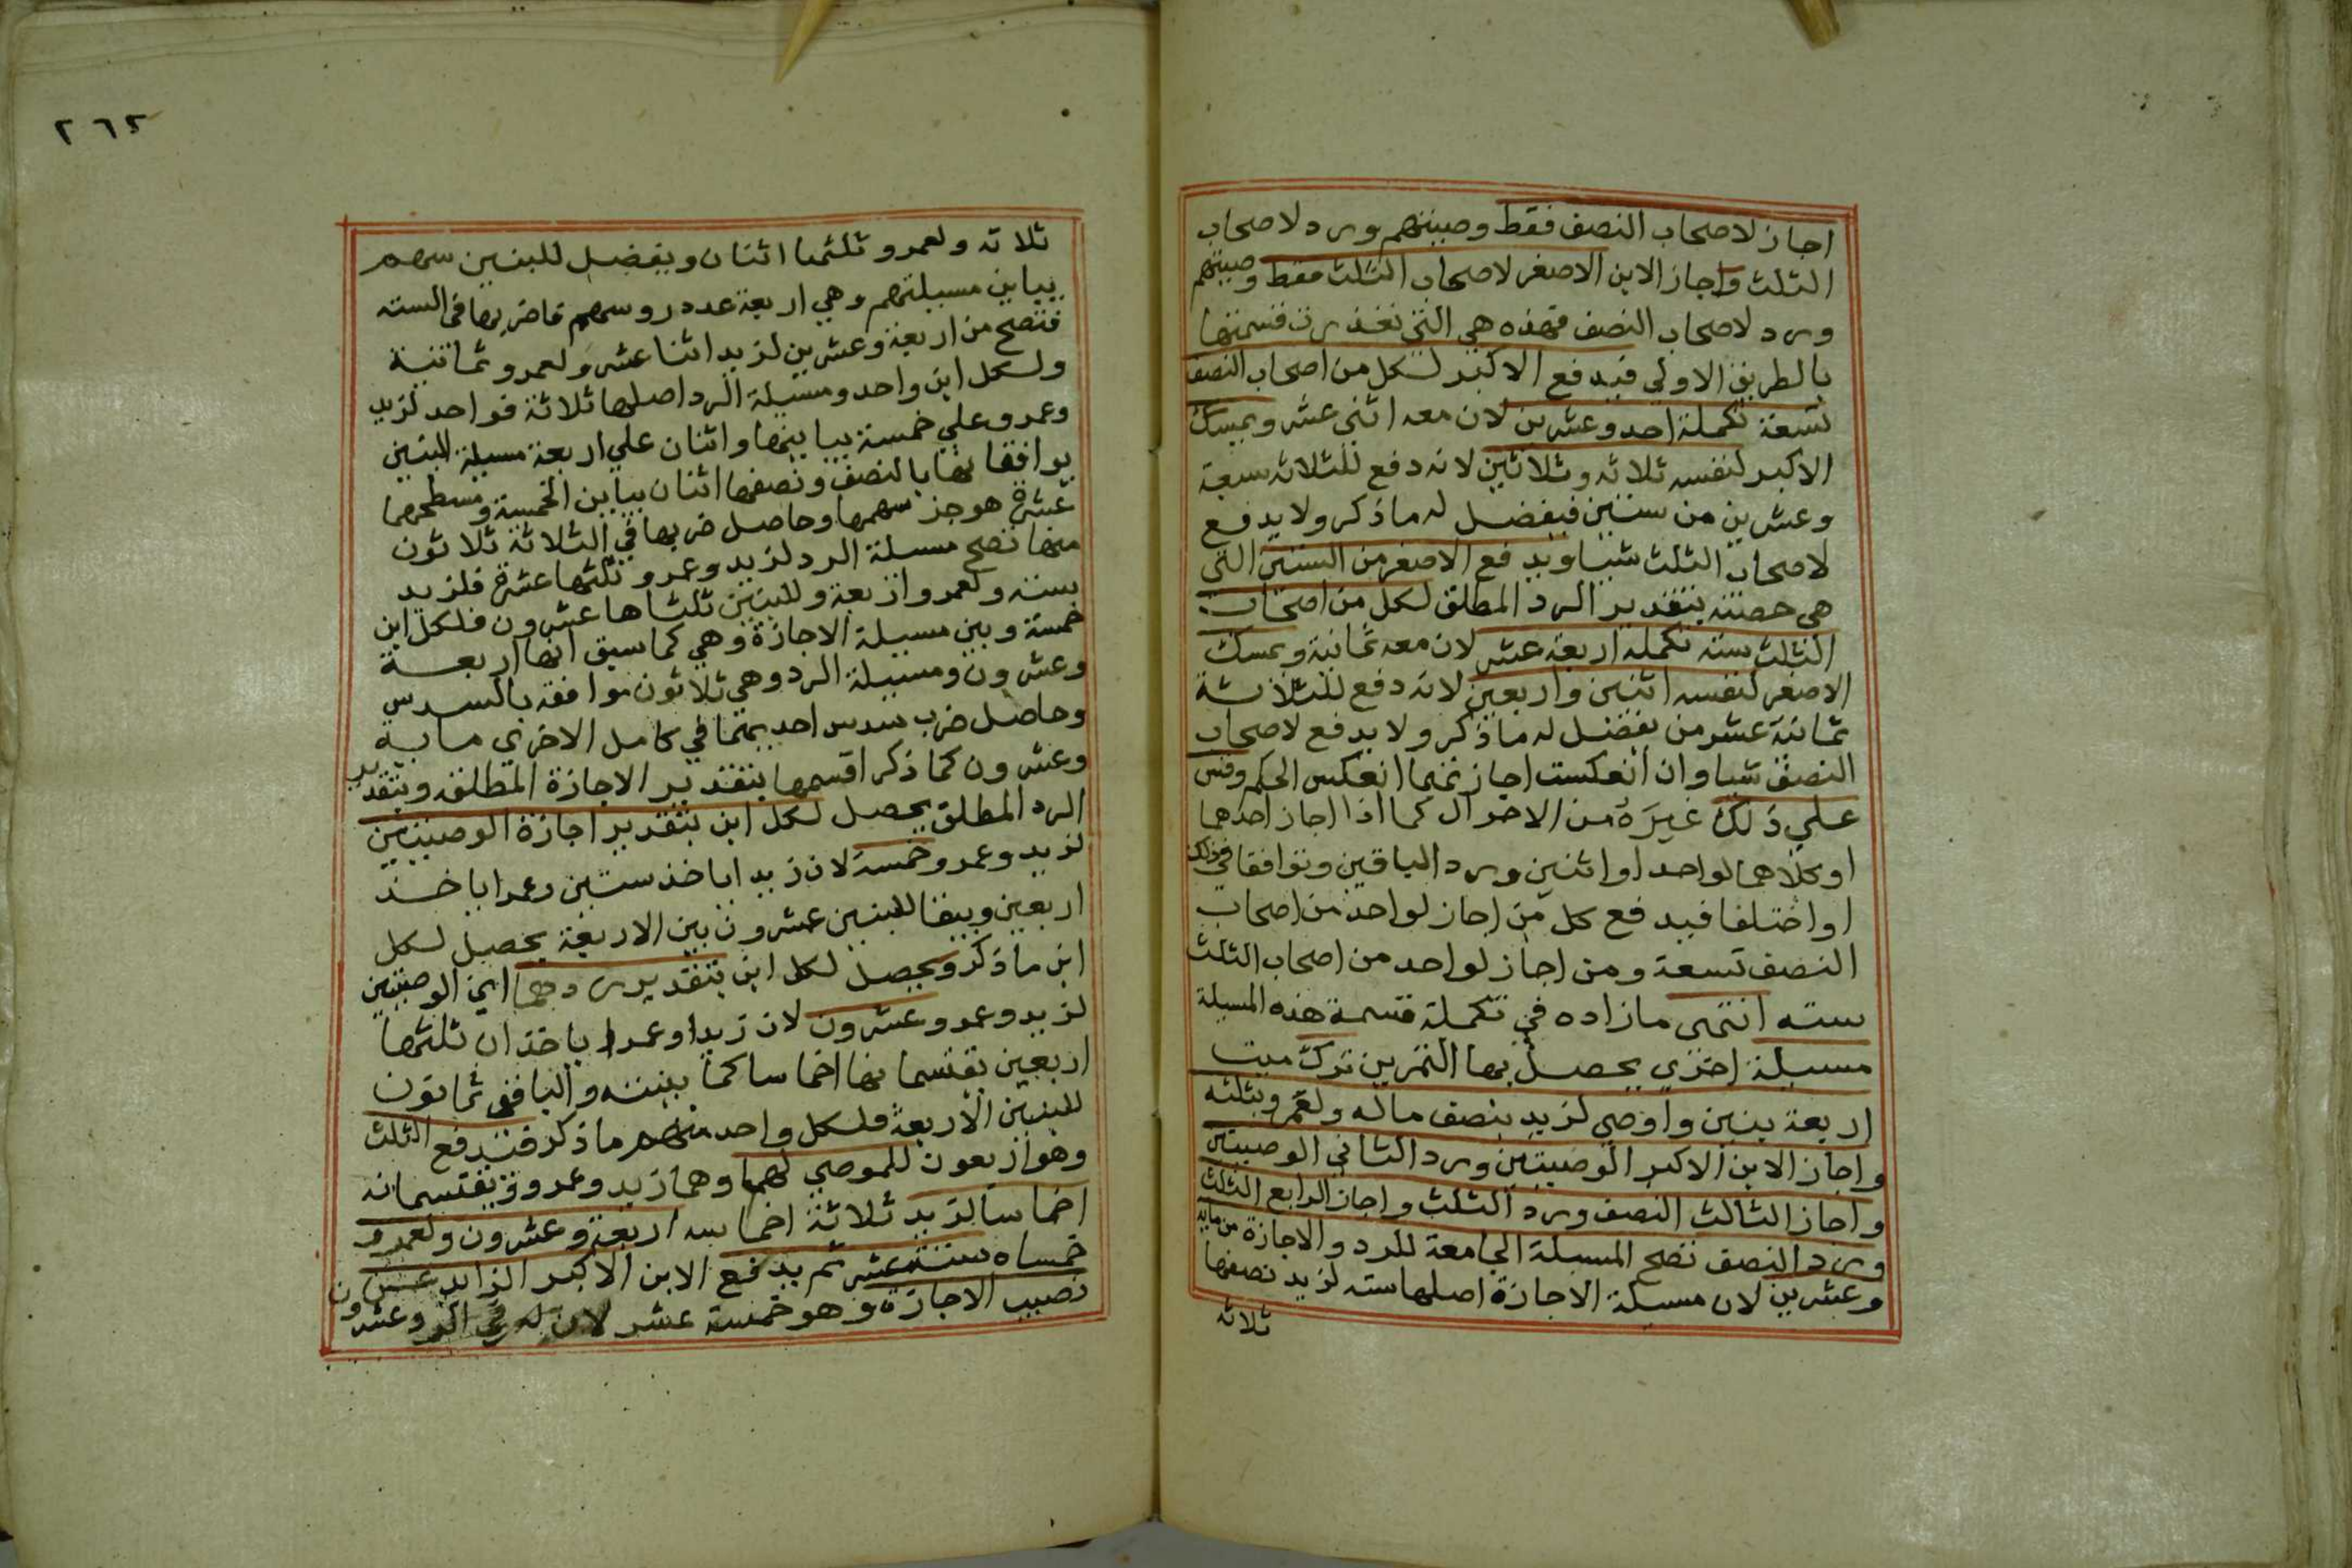 اجاز لاصحاب النصف فقط وصيتهم ورد لاصحاب
الثلث واجاز الابن الاصغر لاصحاب الثلث فقط وصيتهم
ورد لاصحاب النصف فهذه هي التي تعذرت قسمتها
بالطريق الاولي فيدفع الاكبر لكل من اصحاب النصف
تسعة تكملة احد وعشرين لان معه اثني عشر ويمسك
الاكبر لنفسه ثلاثه وثلاثين لانه دفع للثلاثه سبعة
وعشرين من ستين فيفضل له ما ذكر ولا يدفع
لاصحاب الثلث شيا ويدفع الاصغر من الستين التي
هي حصته بتقدير الرد المطلق لكل من اصحاب
الثلث سته تكملة اربعة عشر لان معه ثمانية ويمسك
الاصغر لنفسه اثنين واربعين لانه دفع للثلاثة
ثمانية عشر من يفضل له ما ذكر ولا يدفع لاصحاب
النصف شيا وان انعكست اجازتهما انعكس الحكم وقس
علي ذلك غيره من الاحوال كما اذا اجاز احدهما
او كلاهما لواحد او اثنين ورد الباقين وتوافقا في ذلك
او اختلفا فيدفع كل من اجاز لواحد من اصحاب
النصف تسعة ومن اجاز لواحد من اصحاب الثلث
سته انتهى ما زاده في تكملة قسمة هذه المسيلة
مسيلة اخري يحصل بها التمرين ترك ميت
اربعة بنين واوصي لزيد بنصف ماله ولعمرو بثلثه
واجاز الابن الاكبر الوصيتين ورد الثاني الوصيتين
واجاز الثالث النصف ورد الثلث واجاز الرابع الثلث
ورد النصف تصح المسيلة الجامعة للرد والاجازة من ماية
وعشرين لان مسيلة الاجازة اصلها سته لزيد نصفها
ثلاثه
٢٦٢
ثلاثه ولعمرو ثلثها اثنان ويفضل للبنين سهم
يباين مسيلتهم وهي اربعة عدد روسهم فاضربها في السته
فتصح من اربعة وعشرين لزيد اثنا عشر ولعمرو ثمانية
ولكل ابن واحد ومسيلة الرد اصلها ثلاثة فواحد لزيد
وعمرو علي خمسة يباينها واثنان علي اربعة مسيلة البنين
يوافقانها بالنصف ونصفها اثنان يباين الخمسة ومسطحهما
عشرة هو جز سهمها وحاصل ضربها في الثلاثة ثلاثون
منها تصح مسيلة الرد لزيد وعمرو ثلثها عشرة فلزيد
سته ولعمرو اربعة وللبنين ثلثاها عشرون فلكل ابن
خمسة وبين مسيلة الاجازة وهي كما سبق انها اربعة
وعشرون ومسيلة الرد وهي ثلاثون موافقة بالسدس
وحاصل ضرب سدس احديهما في كامل الاخري ماية
وعشرون كما ذكر اقسمها بتقدير الاجازة المطلقة وبتقدير
الرد المطلق يحصل لكل ابن بتقدير اجازة الوصيتين
لزيد وعمرو خمسة لان زيدا ياخذ ستين وعمرا ياخذ
اربعين ويبقا للبنين عشرون بين الاربعة يحصل لكل
ابن ما ذكر ويحصل لكل ابن بتقدير ردهما اي الوصيتين
لزيد وعمرو عشرون لان زيدا وعمرا ياخذان ثلثها
اربعين يقتسمانها اخماسا كما بينته والباقي ثمانون
للبنين الاربعة فلكل واحد منهم ما ذكر فتدفع الثلث
وهو اربعون للموصي لهما وهما زيد وعمرو يقتسمانه
اخماسا لزيد ثلاثة اخماسه اربعة وعشرون ولعمرو
خمساه ستة عشر ثم يدفع الابن الاكبر الزايد عن
نصيب الاجازة وهو خمسة عشر لان له في الرد عشرون